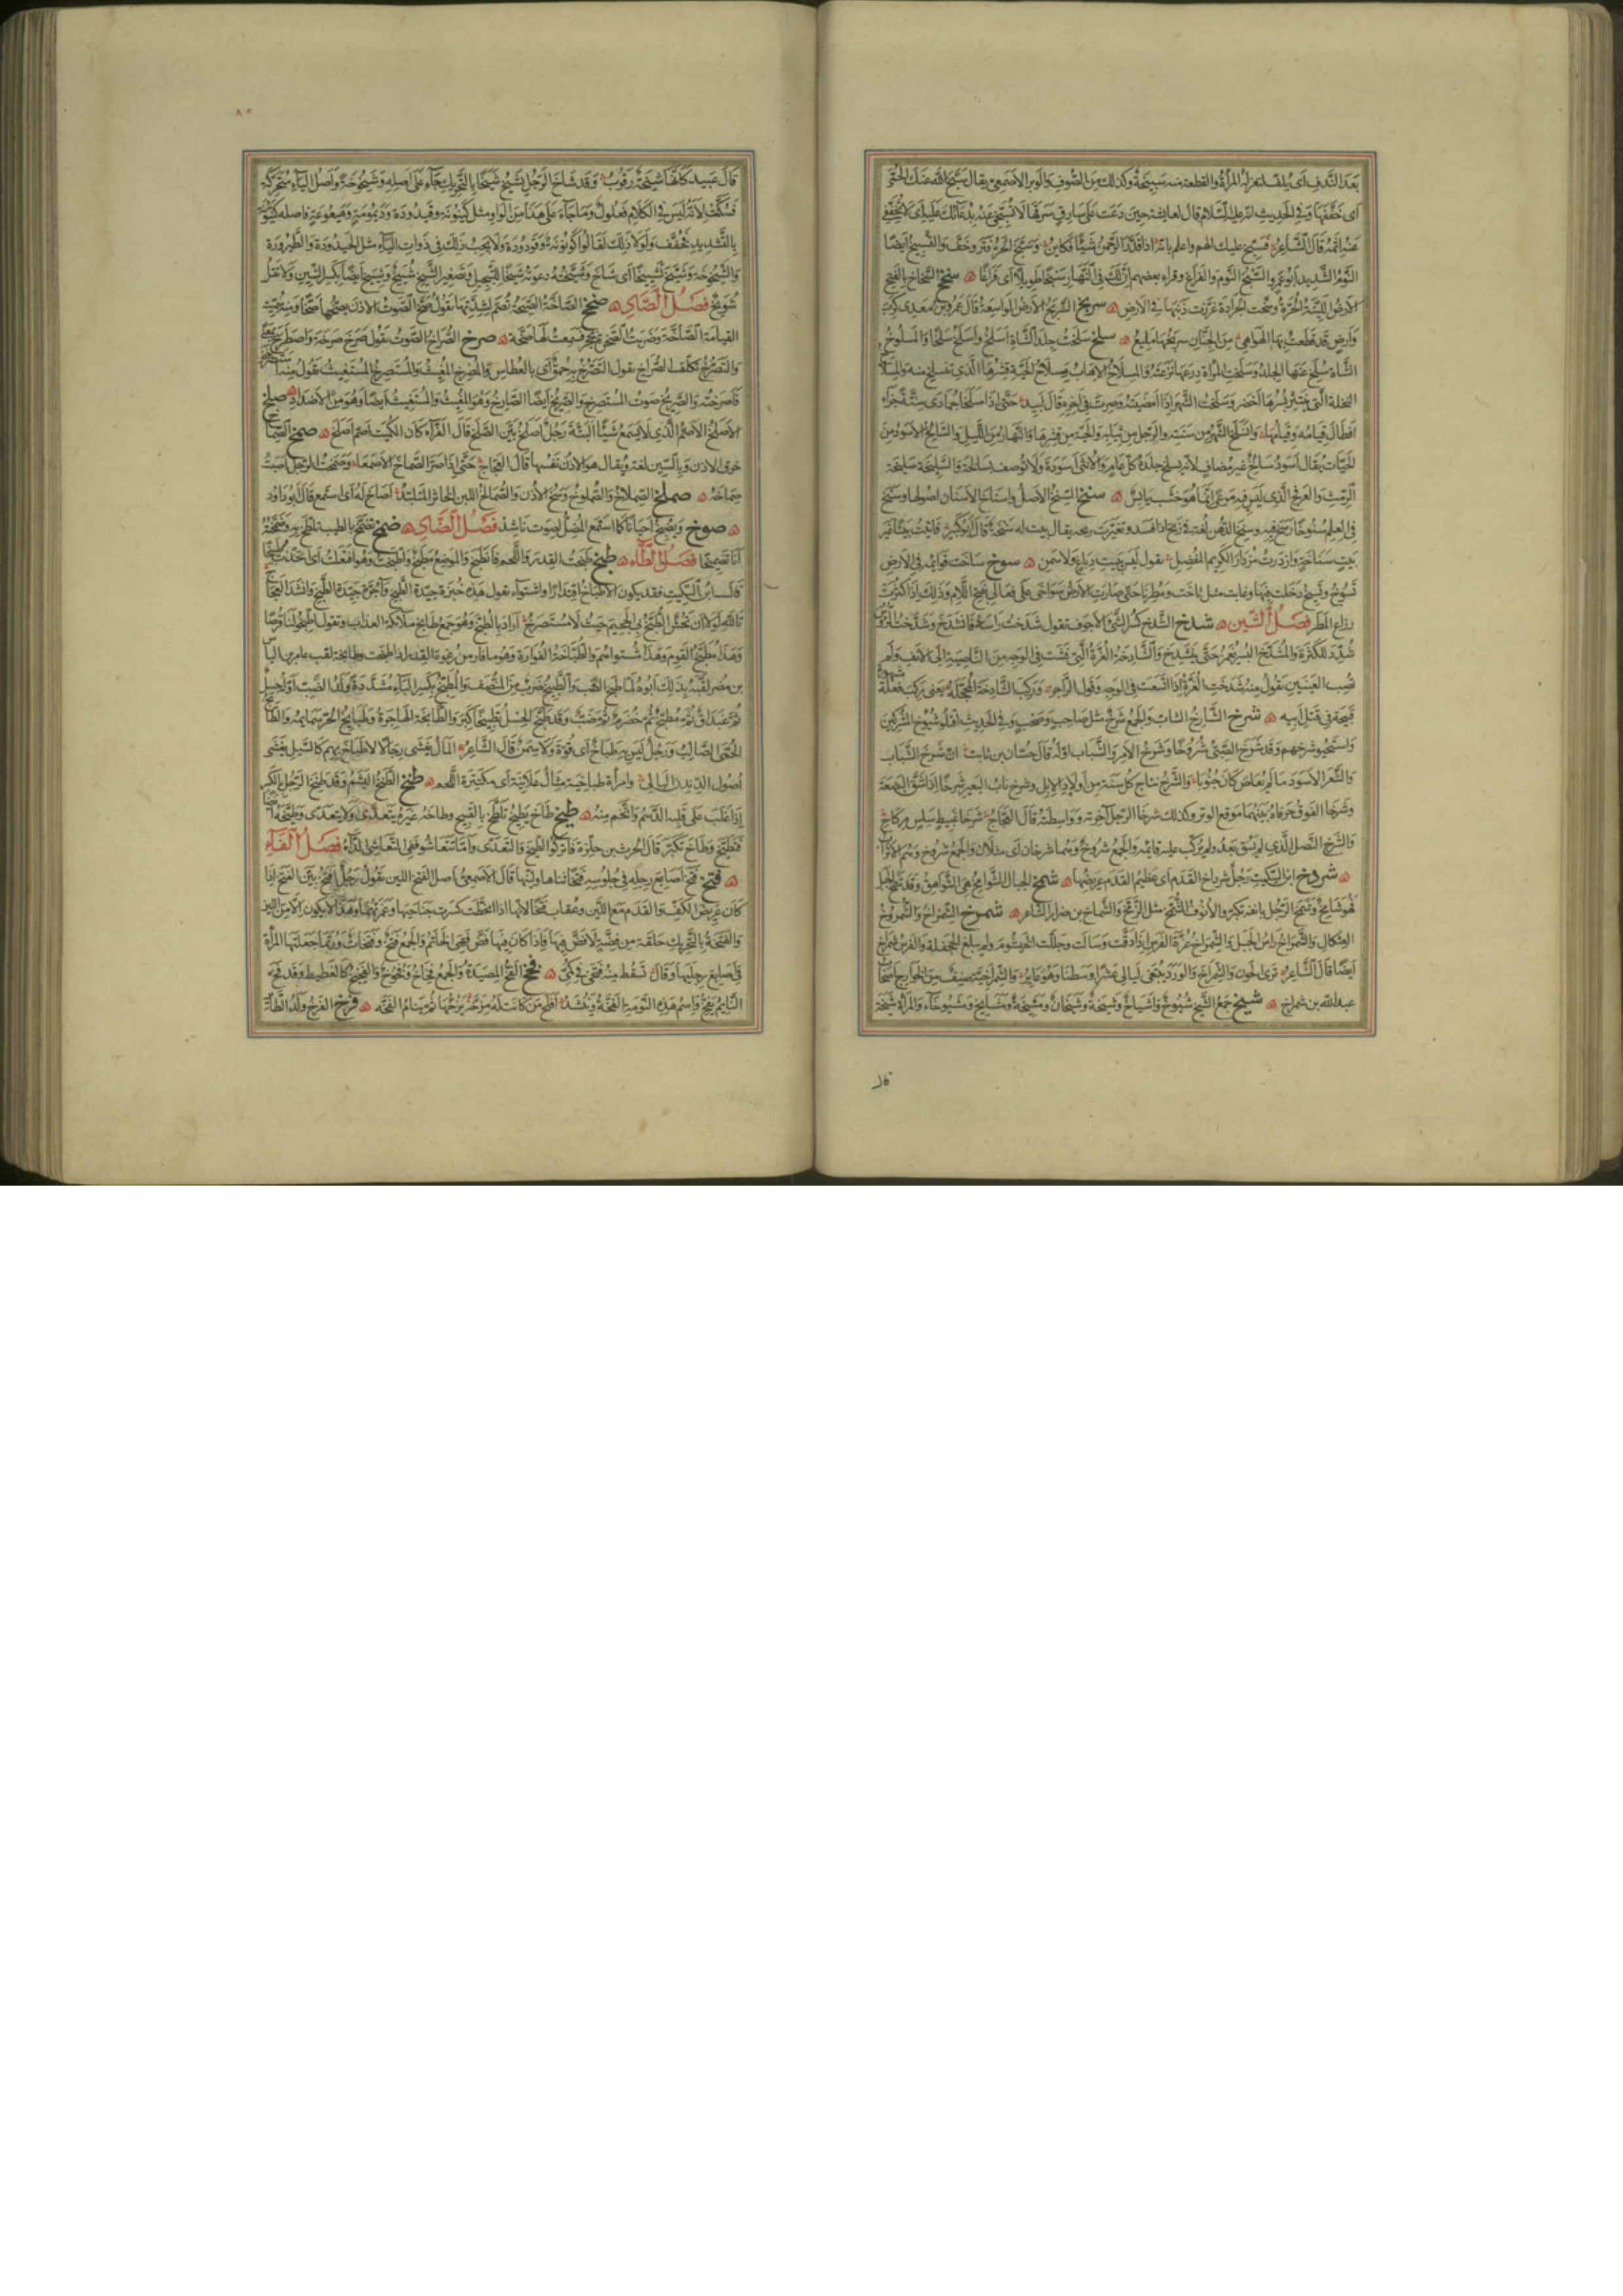 بعد الندف اى يلف لتغزله المرأة والقطعة منه سبيخة وكذلك من الصوف والوبر الاصمعى يقال سبخ الله عنك الحمى
اى خففها وفى الحديث انه عليه السلام قال لعائشة حين دعت على سارق سرقها لا تسبخى عنه بدعائك عليه اى لا تخففى
عنه اثمه قال الشاعر فسبخ عليك الهم واعلم بانه اذا قدر الرحمن شيئا فكاين وسبخ الحر فتر وخف والتسبيخ ايضا
النوم الشديد ابو عمرو السبخ النوم والفراغ وقراء بعضهم ان لك فى النهار سبخا طويلا اى فراغا سخخ السخاخ بالفتح
الارض اللينة الحرة وسخت الجرادة غرزت ذنبها فى الارض سربخ السربخ الارض الواسعة قال عمرو بن معدى كرب
وارض قد قطعت بها الهواهى من الجنان سربخها مليع سلخ سلخت جلد الشاة اسلخ واسلخ سلخا والمسلوخ
الشاة سلخ عنها الجلد وسلخت المرأة درعها نزعته والمسلاخ الاهاب ومسلاخ الحية قشرها الذى تنسلخ منه والمسلاخ
النخلة التى ينتثر بسرها اخضر وسلخت الشهر اذا امضيته وصرت فى آخره قال لبيد حتى اذا سلخا جمادى ستة جزآ
فطال صيامه وصيامها وانسلخ الشهر من سنته والرجل من ثيابه والحية من قشرها والنهار من الليل والسالخ الاسود من
الحيات يقال اسود سالخ غير مضاف لانه يسلخ جلده كل عام والانثى اسودة ولا توصف بسالخة والسليخة سليخة
الرمث والعرفج الذى ليس فيه مرعى انما هو خشب يابس سنخ السنخ الاصل واسناخ الاسنان اصولها وسنخ
فى العلم سنوخا رسخ فيه وسنخ الدهن لغة فى زنخ اذا فسد وتغيرت ريحه يقال بيت له سنخة قال ابو كبير فاتيت بيتا غير
بيت سناخة وازدرت مزدار الكريم المفضل يقول ليس ببيت دباغ ولا سمن سوخ ساخت قوائمه فى الارض
تسوخ وتسيخ دخلت فيها وغابت مثل ثاخت ومطرنا حتى صارت الارض سواخى على فعالى بفتح اللام وذلك اذا كثرت
رداغ المطر فصل الشين شدخ الشدخ كسر الشئ الاجوف تقول شدخت راسه فانشدخ وشدخت الرؤس
شدد للكثرة والمشدخ البسر يغمز حتى ينشدخ والشادخة الغرة التى فشت فى الوجه من الناصية الى الانف ولم
تصب العينين تقول منه شدخت الغرة اذا اتسعت فى الوجه وقول الراجز وركب الشادخة المحجلة يعنى ركب فعلة مشهورة
قبيحة فى قتل ابيه شرخ الشارخ الشاب والجمع شرخ مثل صاحب وصحب وفى الحديث اقتلوا شيوخ المشركين
واستحيوا شرخهم وقد شرخ الصبى شروخا وشرخ الامر والشباب اوله قال حسان بن ثابت ان شرخ الشباب
والشعر الاسود ما لم يعاص كان جنونا والشرخ نتاج كل سنة من اولاد الابل وشرخ ناب البعير شرخا اذا شق البضعة
وشرخا الفوق حرفاه بينهما موقع الوتر وكذلك شرخا الرحل آخرته وواسطته قال العجاج شرخا غبيط سلس مركاح
والشرخ النصل الذى لم يسق بعد ولم يركب عليه قائمه والجمع شروخ وهما شرخان اى مثلان والجمع شروخ وهم الاتراب
شردخ ابن السكيت رجل شرداخ القدم اى عظيم القدم عريضها شمخ الجبال الشوامخ هى الشواهق وقد شمخ الجبل
فهو شامخ وشمخ الرجل بانفه تكبر والانوف الشمخ مثل الزمخ والشماخ بن ضرار الشاعر شمرخ الشمراخ والشمروخ
العثكال والشمراخ راس الجبل والشمراخ غرة الفرس اذا دقت وسالت وجللت الخيشوم ولم يبلغ الجحفلة والفرس شمراخ
ايضا قال الشاعر ترى الجون ذا الشمراخ والورد يبتغى ليالى عشرا وسطنا وهو عاير والشمراخية صنف من الخوارج اصحاب
عبد الله بن شمراخ شيخ جمع الشيخ شيوخ واشياخ وشيخة وشيخان ومشيخة ومشايخ ومشيوخاء والمرأة شيخة
قال
قال عبيد كانها شيخة رقوب وقد شاخ الرجل يشيخ شيخا بالتحريك جاء على اصله وشيخوخة واصل الياء متحركة
فسكنت لانه ليس فى الكلام فعلول وما جاء على هذا من الواو مثل كينونة وقيدودة وديمومة وهيعوعة فاصله كينونة
بالتشديد فخفف ولولا ذلك لقالوا كونونة وقودودة ولا يجب ذلك فى ذوات الياء مثل الحيدودة والطيرورة
والشيخوخة وشيخ تشييخا اى شاخ وشيخته دعوته شيخا للتبجيل وتصغير الشيخ شييخ وشييخ ايضا بكسر الشين ولا تقل
شويخ فصل الصاد صخخ الصاخة الصيحة تصم لشدتها تقول صخ الصوت الاذن يصخها صخا ومنه سميت
القيامة الصاخة وضربت الصخر بحجر فسمعت لها صخة صرخ الصراخ الصوت تقول صرخ صرخة واصطرخ بمعنى
والتصرخ تكلف الصراخ يقول التصرخ به حمق اى بالعطاس والمصرخ المغيث والمستصرخ المستغيث تقول منه استصرخنى
فاصرخته والصريخ صوت المستصرخ والصريخ ايضا الصارخ وهو المغيث والمستغيث ايضا وهو من الاضداد صلخ
الاصلخ الاصم الذى لا يسمع شيئا البتة رجل اصلخ بين الصلخ قال الفراء كان الكميت اصم اصلخ صمخ الصماخ
خرق الاذن وبالسين لغة ويقال هو الاذن نفسها قال العجاج حتى اذا صر الصماخ الاصمعا وصمخت الرجل اصبت
صماخه صملخ الصملاخ والصملوخ وسخ الاذن والصمالخ اللبن الخاثر المتلبد اصاخ له اى استمع قال ابو دؤاد
صوخ ويصيخ احيانا كما استمع المضل لصوت ناشد فصل الضاد ضمخ تضمخ بالطيب تلطخ به وضمخته
انا تضميخا فصل الطاء طبخ طبخت القدر واللحم فانطبخ والموضع مطبخ واطبخت وهو افتعلت اى اتخذت طبيخا
قال ابن السكيت وقد يكون الاطباخ اقتدارا واشتواء تقول هذه خبزة جيدة الطبخ وآجرة جيدة الطبخ وانشد العجاج
تالله لولا ان تحش الطبخ بى الجحيم حيث لا مستصرخ اراد بالطبخ وهو جمع طابخ ملائكة العذاب وتقول اطبخوا لنا قرصا
وهذا مطبخ القوم وهذا مشتواهم والطباخة الفوارة وهو ما فار من رغوة القدر اذا طبخت وطابخة لقب عامر بن الياس
بن مضر لقبه بذلك ابوه لما طبخ الضب والطبيخ ضرب من المنصف والمطبخ بكسر الباء مشددة ولد الضب اوله حسل
ثم غيداق ثم مطبخ ثم خضرم ثم ضب وقد طبخ الحسل تطبيخا كبر والطابخة الهاجرة وطبايخ الحر سمايمه والطابخ
الحمى الصالب ورجل ليس به طباخ اى قوة ولا سمن قال الشاعر المال يغشى رجالا لا طباخ بهم كالسيل يغشى
اصول الدندن البالى وامرأة طباخية مثال علانية اى مكتنزة اللحم طنخ الطنخ البشم وقد طنخ الرجل بالكسر
اذا غلب على قلبه الدسم واتخم منه طيخ طاخ يطيخ تلطخ بالقبيح وطاخه غيره يتعدى ولا يتعدى وطيخه
فتطيخ وطاخ تكبر قال الحرث بن حلزة فاتركوا الطيخ والتعدى واما تتعاشوا ففى التعاشى الداء فصل الفاء
فتخ فتخ اصابع رجله فى جلوسه فتخا ثناها ولينها قال الاصمعى اصل الفتخ اللين تقول رجل افتخ بين الفتخ اذا
كان عريض الكف والقدم مع اللين وعقاب فتخاء لانها اذا انحطت كسرت جناحيها وغمزتهما وهذا لا يكون الا من اللين
والفتخة بالتحريك حلقة من فضة لا فص فيها فاذا كان فيها فص فهى الخاتم والجمع فتخ وفتخات وربما جعلتها المرأة
فى اصابع رجليها وقال تسقط منه فتخى فى كمى فخخ الفخ المصيدة والجمع فخاخ وفخوخ والفخيخ كالغطيط وقد فخ
النائم يفخ واسم هذه النومة الفخة وينشد افلح من كانت له مزخه يزخها ثم ينام الفخه فرخ الفرخ ولد الطائر